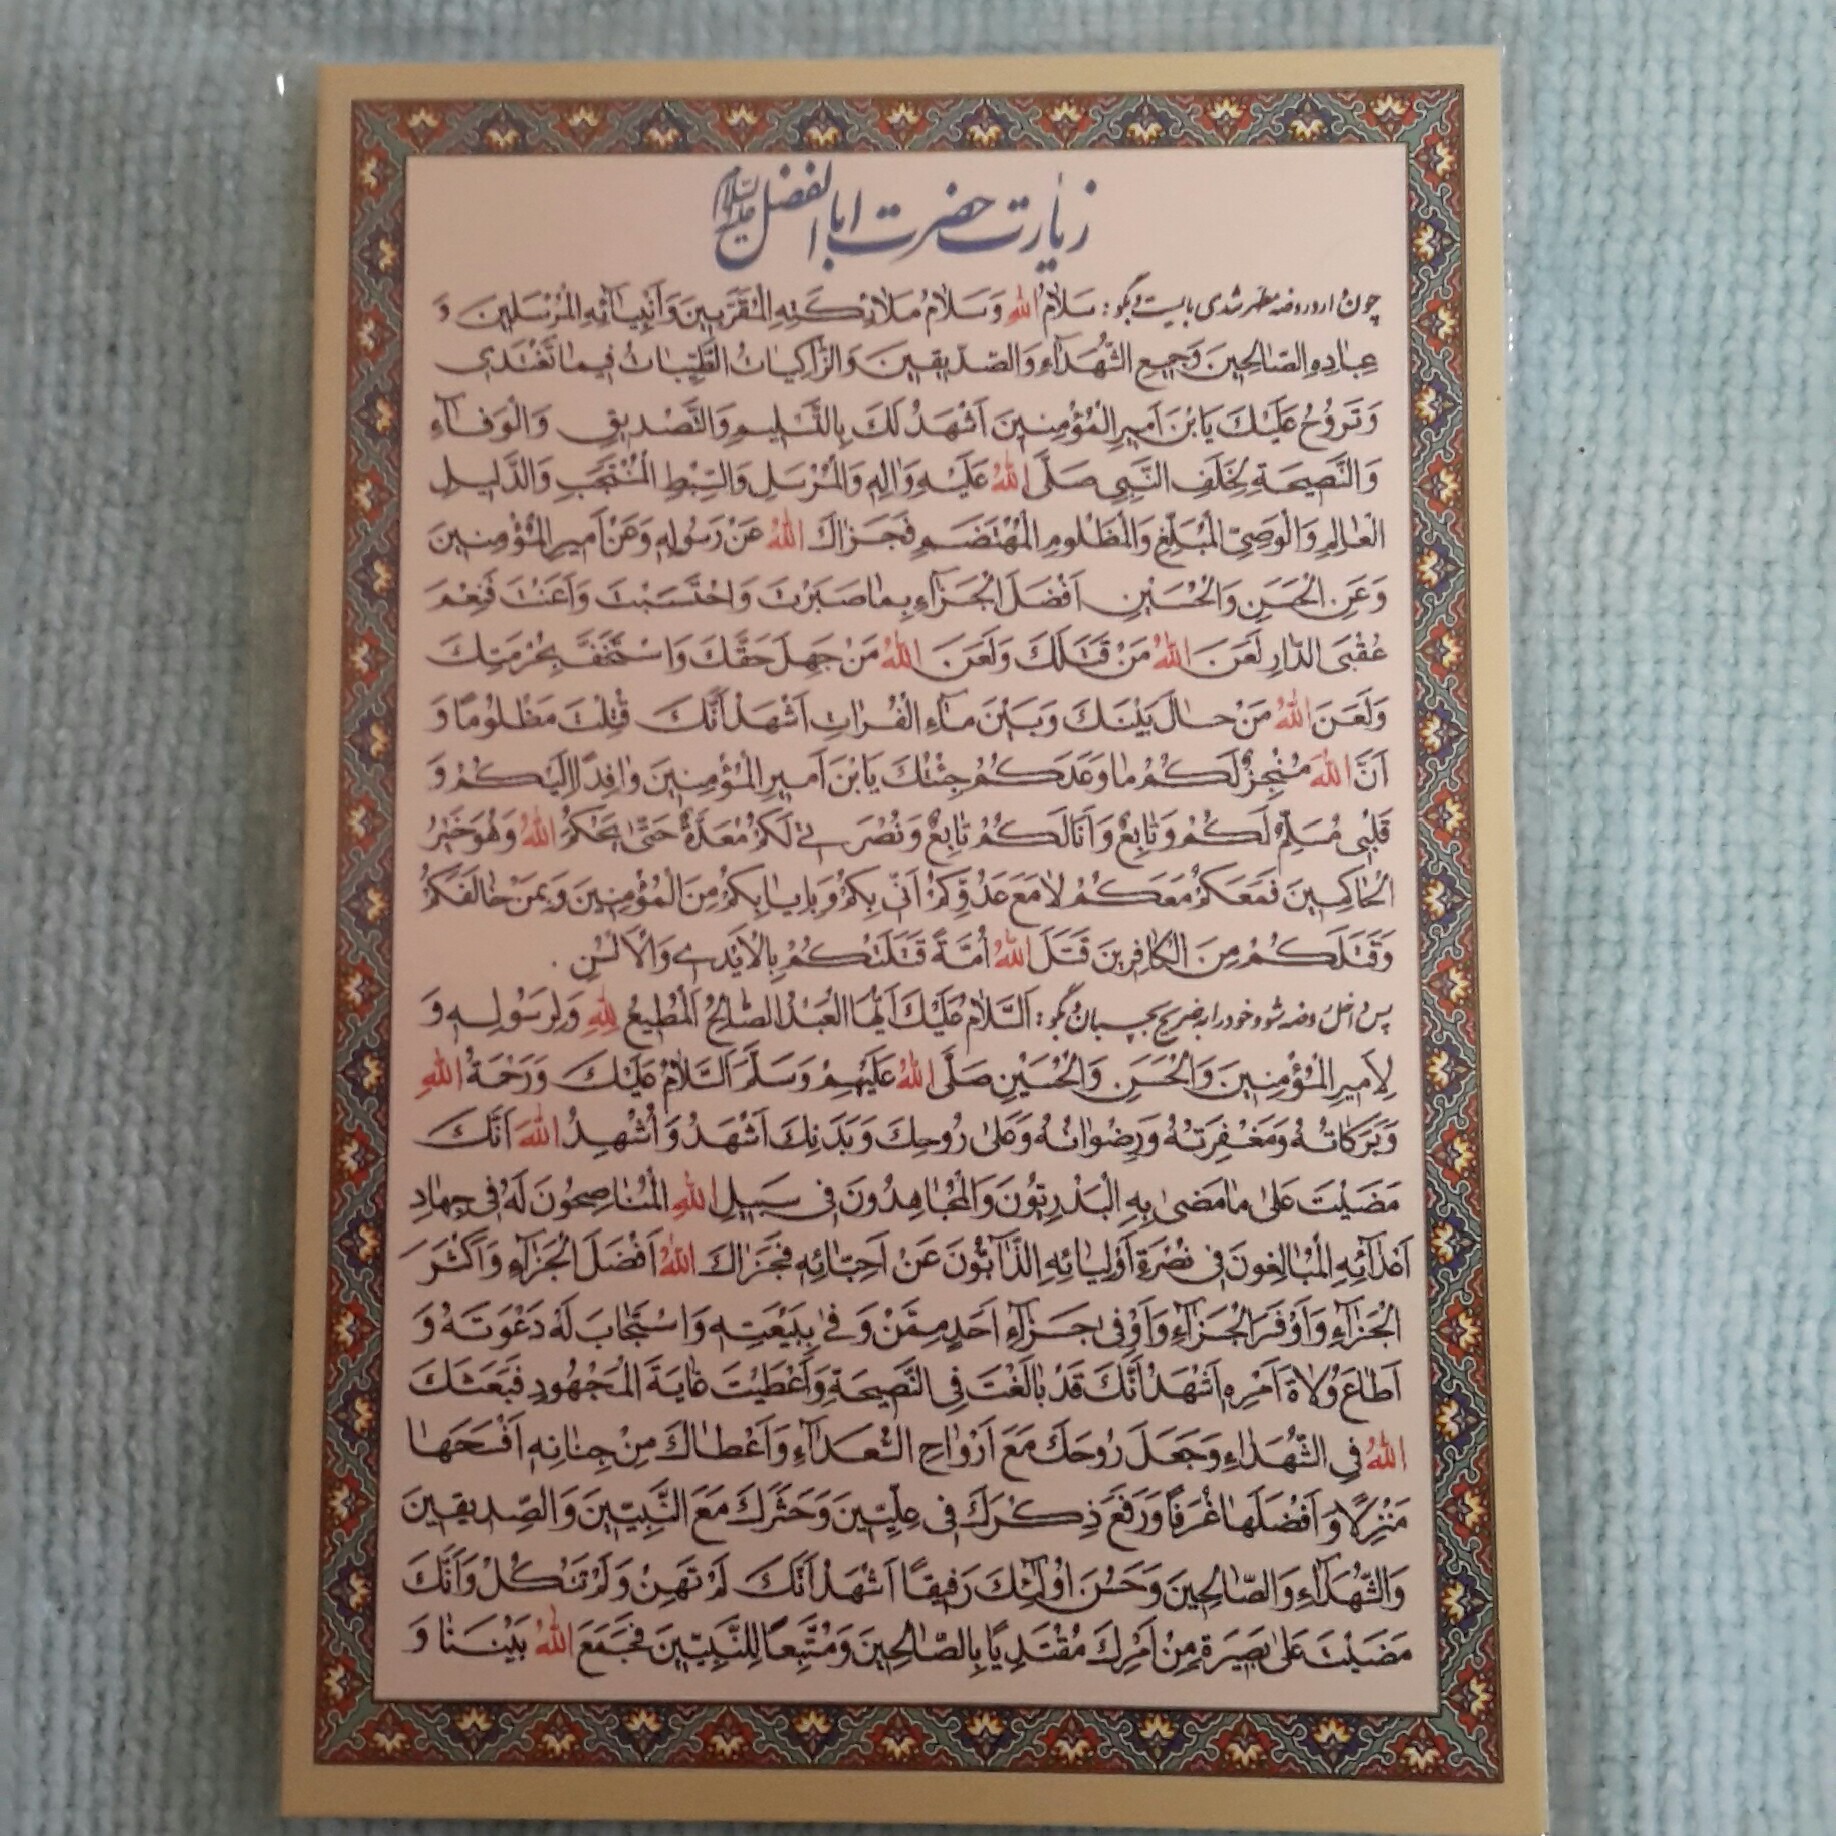 زیارت حضرت اباالفضل علیه السلام
چون وارد روضه مطهر شدی بایست و بگو: سَلامُ اللهِ وَ سَلامُ مَلائِكَتِهِ الْمُقَرَّبينَ وَاَنْبِيائِهِ الْمُرْسَلينَ وَ
عِبادِهِ الصّالِحينَ وَجَميعِ الشُّهَدآءِ وَالصِّدّيقينَ وَالزّاكِياتُ الطَّيِّباتُ فيما تَغْتَدي
وَتَرُوحُ عَلَيْكَ يَابْنَ اَميرِ الْمُؤْمِنينَ اَشْهَدُ لَكَ بِالتَّسْليمِ وَالتَّصْديقِ وَالْوَفآءِ
وَالنَّصيحَةِ لِخَلَفِ النَّبِيِ صَلَّى اللهُ عَلَيْهِ وَالِهِ وَالْمُرْسَلِ وَالسِّبْطِ الْمُنْتَجَبِ وَالدَّليلِ
الْعالِمِ وَالْوَصِيِّ الْمُبَلِّغِ وَالْمَظْلُومِ الْمُهْتَضَمِ فَجَزاكَ اللهُ عَنْ رَسُولِهِ وَعَنْ اَميرِ الْمُؤْمِنينَ
وَعَنِ الْحَسَنِ وَالْحُسَيْنِ اَفْضَلَ الْجَزآءِ بِما صَبَرْتَ وَاحْتَسَبْتَ وَاَعَنْتَ فَنِعْمَ
عُقْبَى الدّارِ لَعَنَ اللهُ مَنْ قَتَلَكَ وَلَعَنَ اللهُ مَنْ جَهِلَ حَقَّكَ وَاسْتَخَفَّ بِحُرْمَتِكَ
وَلَعَنَ اللهُ مَنْ حالَ بَيْنَكَ وَبَيْنَ مآءِ الْفُراتِ اَشْهَدُ اَنَّكَ قُتِلْتَ مَظْلُومًا وَ
اَنَّ اللهَ مُنْجِزٌ لَكُمْ ما وَعَدَكُمْ جِئْتُكَ يَابْنَ اَميرِ الْمُؤْمِنينَ وافِدًا اِلَيْكُمْ وَ
قَلْبي مُسَلِّمٌ لَكُمْ وَتابِعٌ وَاَنَا لَكُمْ تابِعٌ وَنُصْرَتي لَكُمْ مُعَدَّةٌ حَتّى يَحْكُمَ اللهُ وَهُوَ خَيْرُ
الْحاكِمينَ فَمَعَكُمْ مَعَكُمْ لا مَعَ عَدُوِّكُمْ اِنّي بِكُمْ وَبِاِيابِكُمْ مِنَ الْمُؤْمِنينَ وَبِمَنْ خالَفَكُمْ
وَقَتَلَكُمْ مِنَ الْكافِرينَ قَتَلَ اللهُ اُمَّةً قَتَلَتْكُمْ بِالْاَيْدي وَالْاَلْسُنِ .
پس داخل روضه شو و خود را به ضریح بچسبان و بگو: اَلسَّلامُ عَلَيْكَ اَيُّهَا الْعَبْدُ الصّالِحُ الْمُطيعُ لِلّهِ وَلِرَسُولِهِ وَ
لِاَميرِ الْمُؤْمِنينَ وَالْحَسَنِ وَالْحُسَيْنِ صَلَّى اللهُ عَلَيْهِمْ وَسَلَّمَ اَلسَّلامُ عَلَيْكَ وَرَحْمَةُ اللهِ
وَبَرَكاتُهُ وَمَغْفِرَتُهُ وَرِضْوانُهُ وَعَلى رُوحِكَ وَبَدَنِكَ اَشْهَدُ وَاُشْهِدُ اللهَ اَنَّكَ
مَضَيْتَ عَلى ما مَضى بِهِ الْبَدْرِيُّونَ وَالْمُجاهِدُونَ في سَبيلِ اللهِ الْمُناصِحُونَ لَهُ في جِهادِ
اَعْدآئِهِ الْمُبالِغُونَ في نُصْرَةِ اَوْلِيائِهِ الذّآبُّونَ عَنْ اَحِبّائِهِ فَجَزاكَ اللهُ اَفْضَلَ الْجَزآءِ وَاَكْثَرَ
الْجَزآءِ وَاَوْفَرَ الْجَزآءِ وَاَوْفى جَزآءِ اَحَدٍ مِمَّنْ وَفى بِبَيْعَتِهِ وَاسْتَجابَ لَهُ دَعْوَتَهُ وَ
اَطاعَ وُلاةَ اَمْرِهِ اَشْهَدُ اَنَّكَ قَدْ بالَغْتَ فِي النَّصيحَةِ وَاَعْطَيْتَ غايَةَ الْمَجْهُودِ فَبَعَثَكَ
اللهُ فِي الشُّهَداءِ وَجَعَلَ رُوحَكَ مَعَ اَرْواحِ السُّعَدآءِ وَاَعْطاكَ مِنْ جِنانِهِ اَفْسَحَها
مَنْزِلًا وَاَفْضَلَها غُرَفًا وَرَفَعَ ذِكْرَكَ في عِلِّيّينَ وَحَشَرَكَ مَعَ النَّبِيّينَ وَالصِّدّيقينَ
وَالشُّهَدآءِ وَالصّالِحينَ وَحَسُنَ اُولئِكَ رَفيقًا اَشْهَدُ اَنَّكَ لَمْ تَهِنْ وَلَمْ تَنْكُلْ وَاَنَّكَ
مَضَيْتَ عَلى بَصيرَةٍ مِنْ اَمْرِكَ مُقْتَدِيًا بِالصّالِحينَ وَمُتَّبِعًا لِلنَّبِيّينَ فَجَمَعَ اللهُ بَيْنَنا وَ